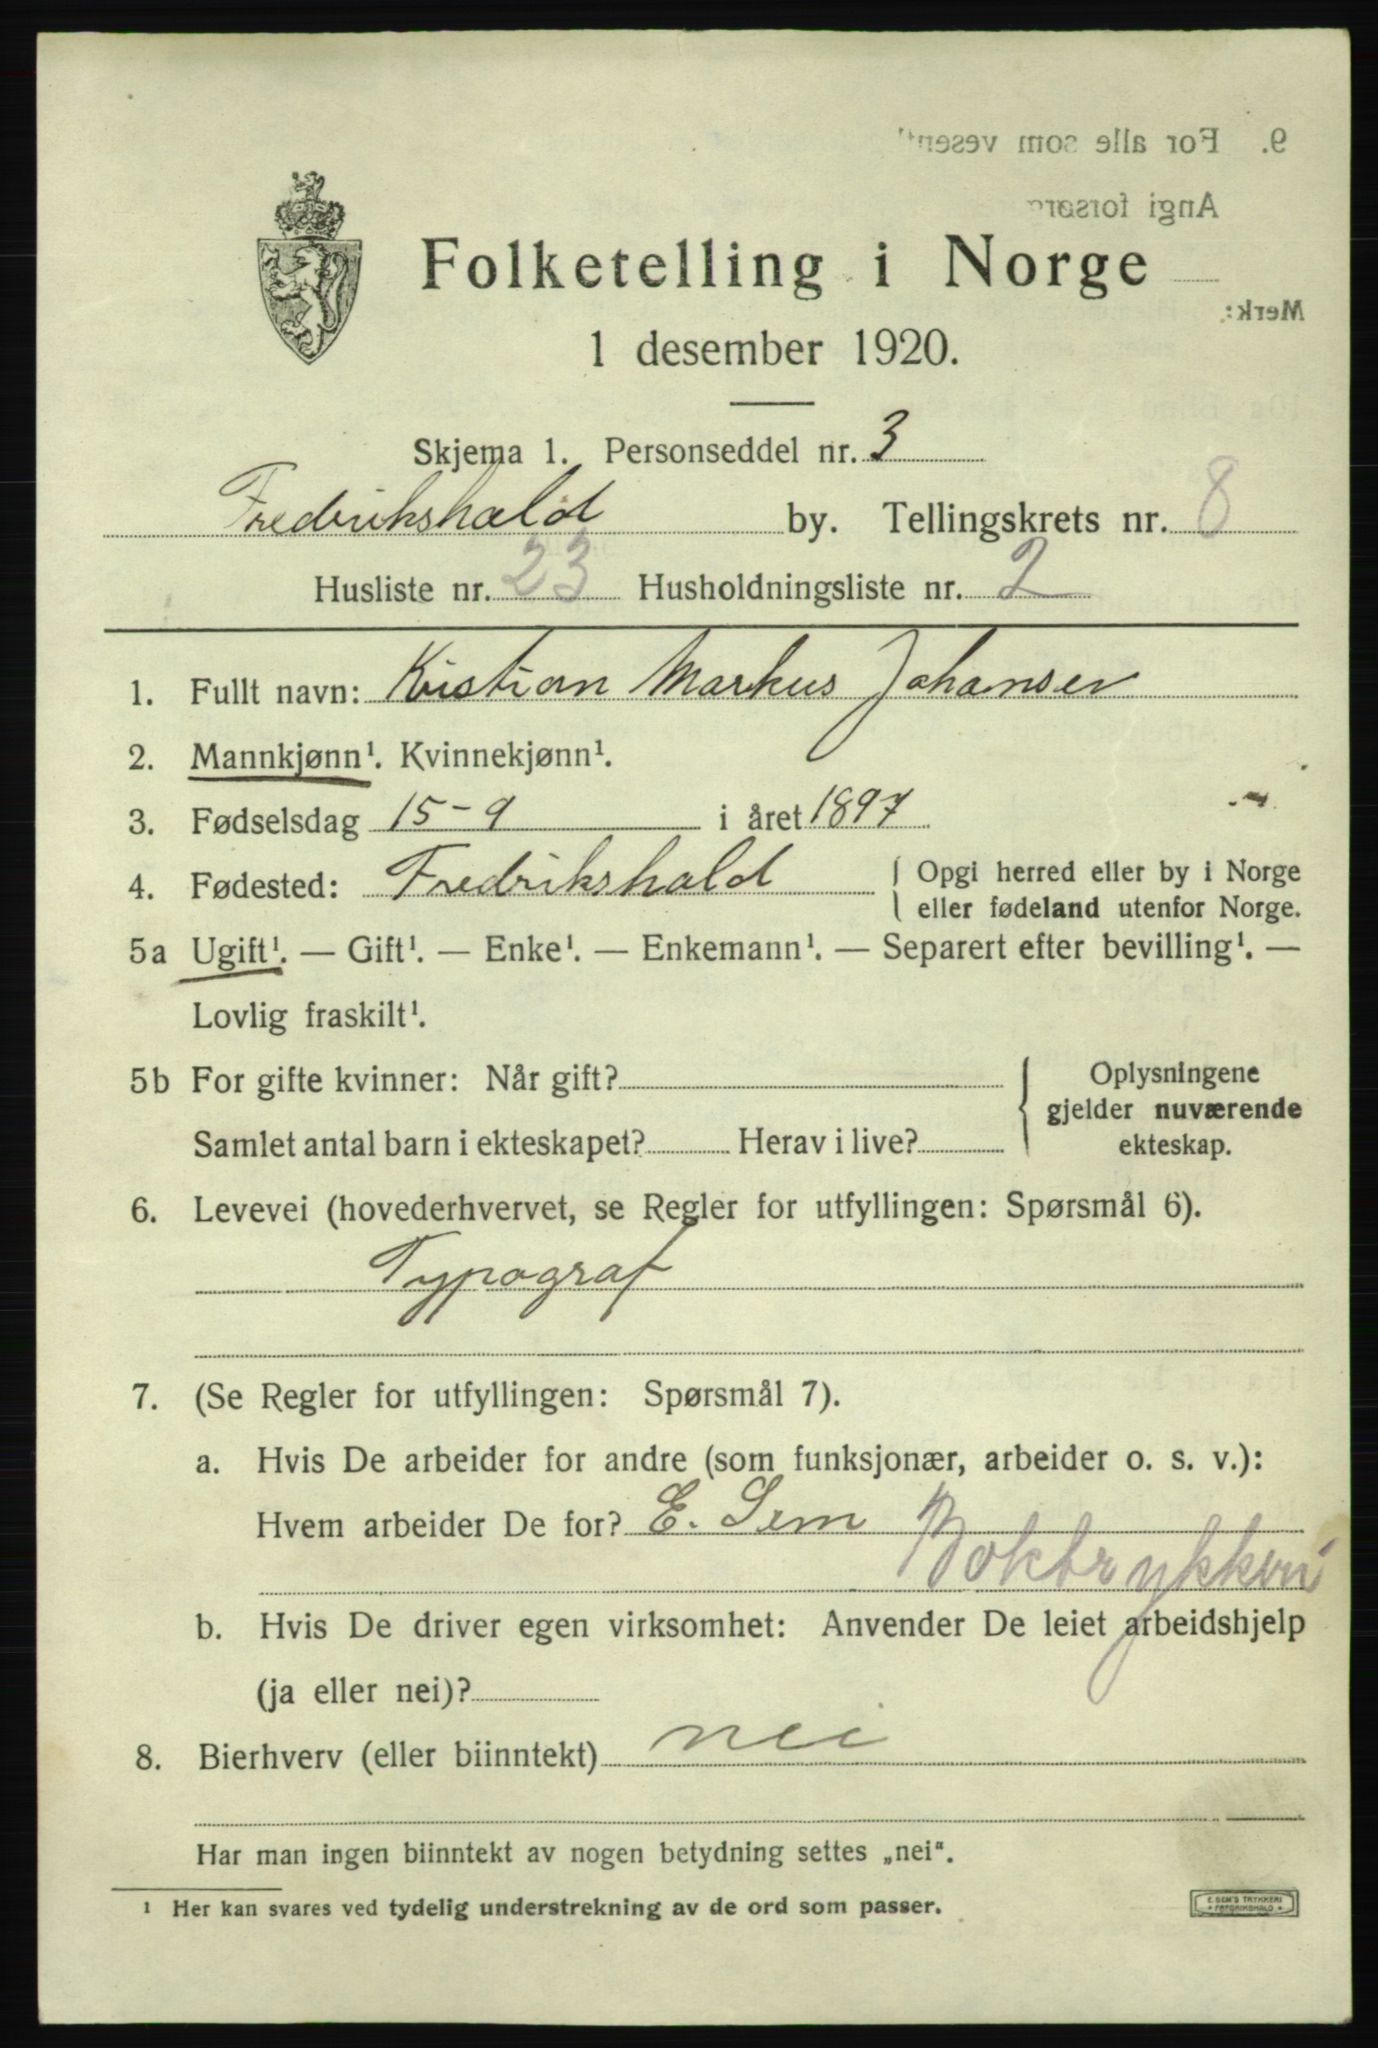 Folketelling i Norge
1 desember 1920.
Skjema 1. Personseddel nr. 3
Fredrikshald by. Tellingskrets nr. 8
Husliste nr. 23 Husholdningsliste nr. 2
1. Fullt navn: Kristian Markus Johansen
2. Mannkjønn¹. Kvinnekjønn¹.
3. Fødselsdag 15-9 i året 1897
4. Fødested: Fredrikshald { Opgi herred eller by i Norge
eller fødeland utenfor Norge.
5a Ugift¹. — Gift¹. — Enke¹. — Enkemann¹. — Separert efter bevilling¹. —
Lovlig fraskilt¹.
5b For gifte kvinner: Når gift?
Samlet antal barn i ekteskapet? Herav i live?
{ Oplysningene
gjelder nuværende
ekteskap.
6. Levevei (hovederhvervet, se Regler for utfyllingen: Spørsmål 6).
Typograf
7. (Se Regler for utfyllingen: Spørsmål 7).
a. Hvis De arbeider for andre (som funksjonær, arbeider o. s. v.):
Hvem arbeider De for? E. Sem
Boktrykkeri
b. Hvis De driver egen virksomhet: Anvender De leiet arbeidshjelp
(ja eller nei)?
8. Bierhverv (eller biinntekt) nei
Har man ingen biinntekt av nogen betydning settes „nei".
¹ Her kan svares ved tydelig understrekning av de ord som passer.
E. SEM'S TRYKKERI
FREDRIKSHALD
9. For alle som vesentl
Angi forsørg
Merk: